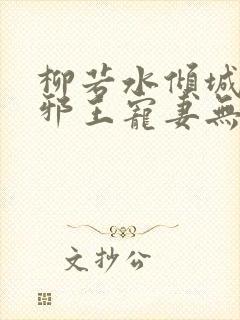 柳若水傾城
邪王寵妻無
文抄公